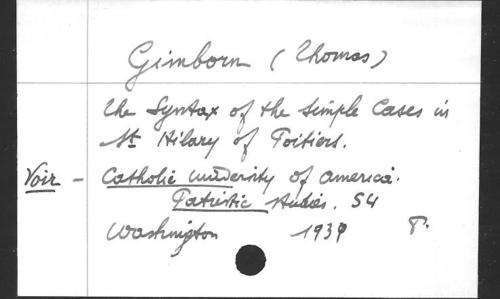 Gimborn (Thomas)
The Syntax of the Simple Cases in
St Hilary of Poitiers.
Voir - Catholic University of America.
Patristic Studies. 54
Washington 1939 8º.